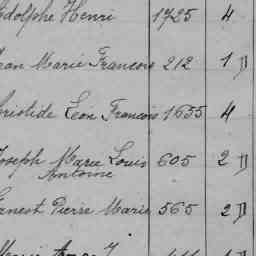 Adolphe Henri 1725 4
Jean Marie Francois 212 1 D
Aristide Léon Francois 1655 4
Joseph Marie Louis 605 2 D
Antoine
Ernest Pierre Marie 565 2 D